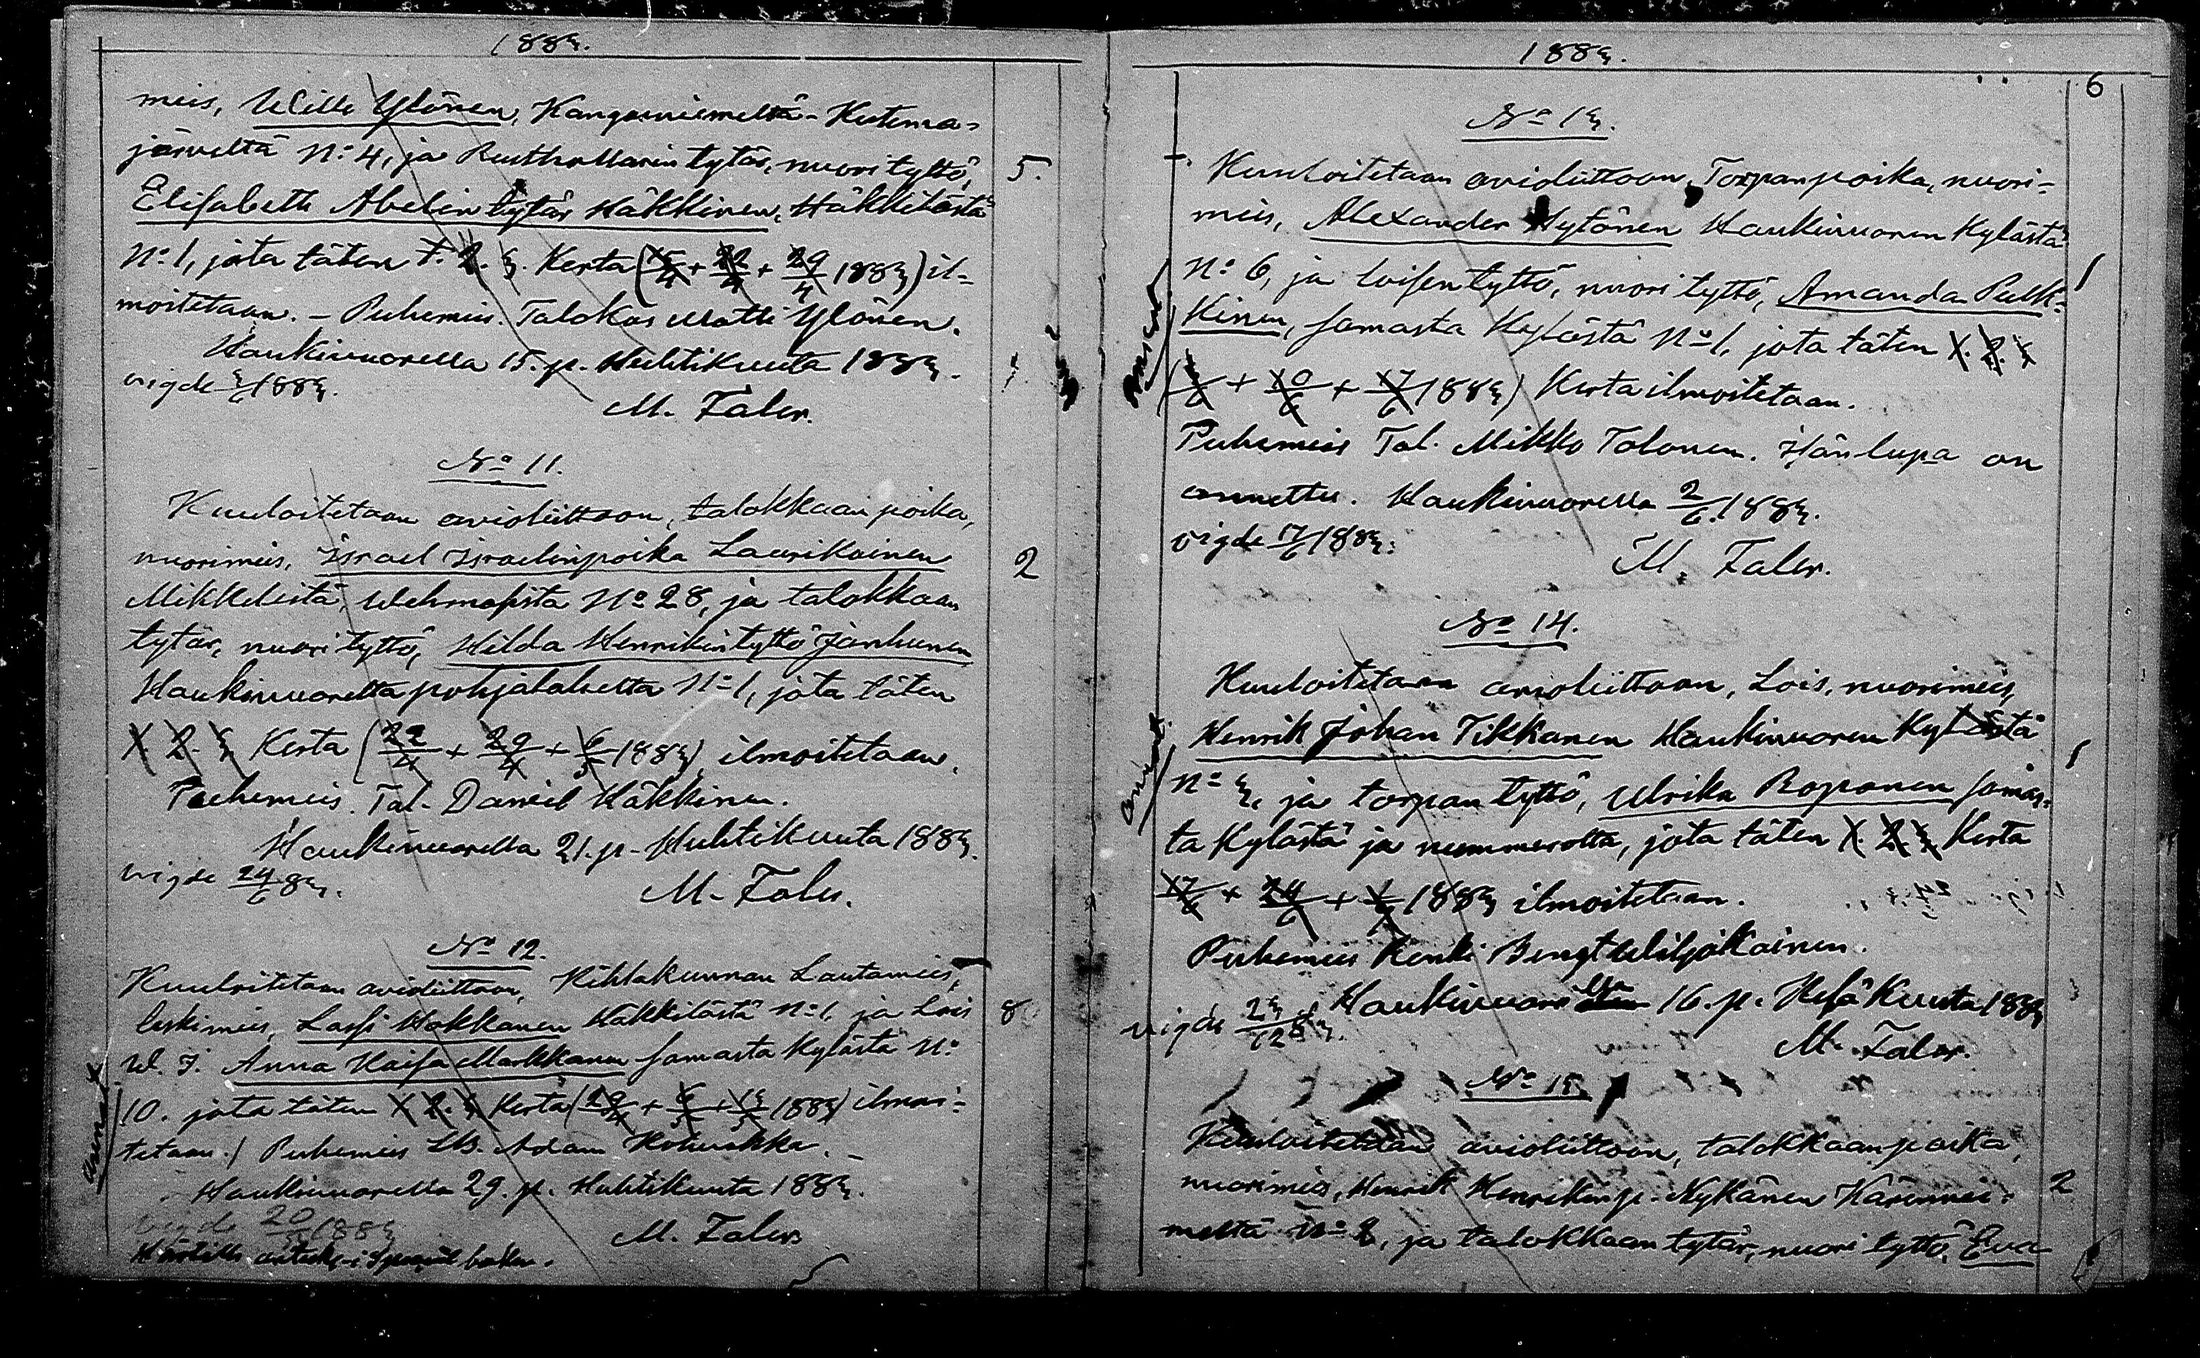 1883.
meis, Wille Ylönen, Kangasniemeltä - Kutema-
järveltä No 4, ja Rusthollarin tytär, nuori tyttö,
5.
Elisabeth Abelin tytär Häkkinen, Häkkilästä
No 1, jota täten 1. 2. 3. Kerta (15/4 + 22/4 + 29/4 1883) il-
moitetaan. - Puhemies. Talokas Matti Ylönen.
Haukivuorella 15. p. Huhtikuuta 1883.
vigde 1883.
M. Zaler.
No 11.
Kuuloitetaan avioliittoon, talokkaan poika,
nuorimeis, Israel Israelinpoika Laurikainen
2
Mikkelistä, Wehmaskylä No 28, ja talokkaan
tytär, nuori tyttö, Hilda Henrikintyttö Janhunen
Haukivuorelta pohjalahelta No 1, jota täten
1 2. 3. Kerta (22/4 + 29/4 + 6/5 1883) ilmoitetaan.
Puhemeis. Tal. Daniel Häkkinen.
Haukivuorella 21. p. Huhtikuuta 1883.
vigde 24/6 83.
M. Zaler.
No 12.
Kuuloitetaan avioliittoon, Kihlakunnan Lautamies,
leskimeis, Lassi Hokkanen Häkkilästä No 1, ja Lois
8
Anna Kaisa Markkanen samasta Kylästä No
10. jota täten 1 2. 3 Kerta (29/4 + 6/5 + 13/5 1883) ilmoi-
tetaan. Puhemeis Adam
Haukivuorella 29. p. Huhtikuuta 1883.
vigde 20/5 1883
M. Zaler
1883.
6
No 13.
Kuuloitetaan avioliittoon, Torpanpoika, nuori-
meis, Alexander Hytönen Haukivuoren Kylästä
No 6, ja loisen tyttö, nuori tyttö, Amanda Pulk-
1
kinen, samasta Kylästä No 1, jota täten 1. 2. 3
(3/6 + 10/6 + 17/6 1883) Kerta ilmoitetaan.
Puhemeis Tal. Mikko Tolonen. Häälupa on
annettu. Haukivuorella 2/6 1883.
vigde 17/6 1883.
M. Zaler.
No 14.
Kuuloitetaan avioliittoon, Lois, nuorimeis,
Henrik Johan Tikkanen Haukivuoren Kylästä
1
No 3, ja torpan tyttö, Ulrika Roponen samas-
ta Kylästä ja nummerolta, jota täten 1 2 3 Kerta
17/6 + 24/6 + 1/6 1883 ilmoitetaan.
Puhemeis Renki Bengt Wiljakainen.
Haukivuorella 16. p. Kesäkuuta 1883
vigde 23/12 83.
M. Zaler.
No 15.
Kuuloitetaan avioliittoon, talokkaanpoika,
nuorimeis, Henrik Henrikinp. Nykänen Kärinnie-
2
meltä No 2, ja talokkaan tytär, nuori tyttö, Eva